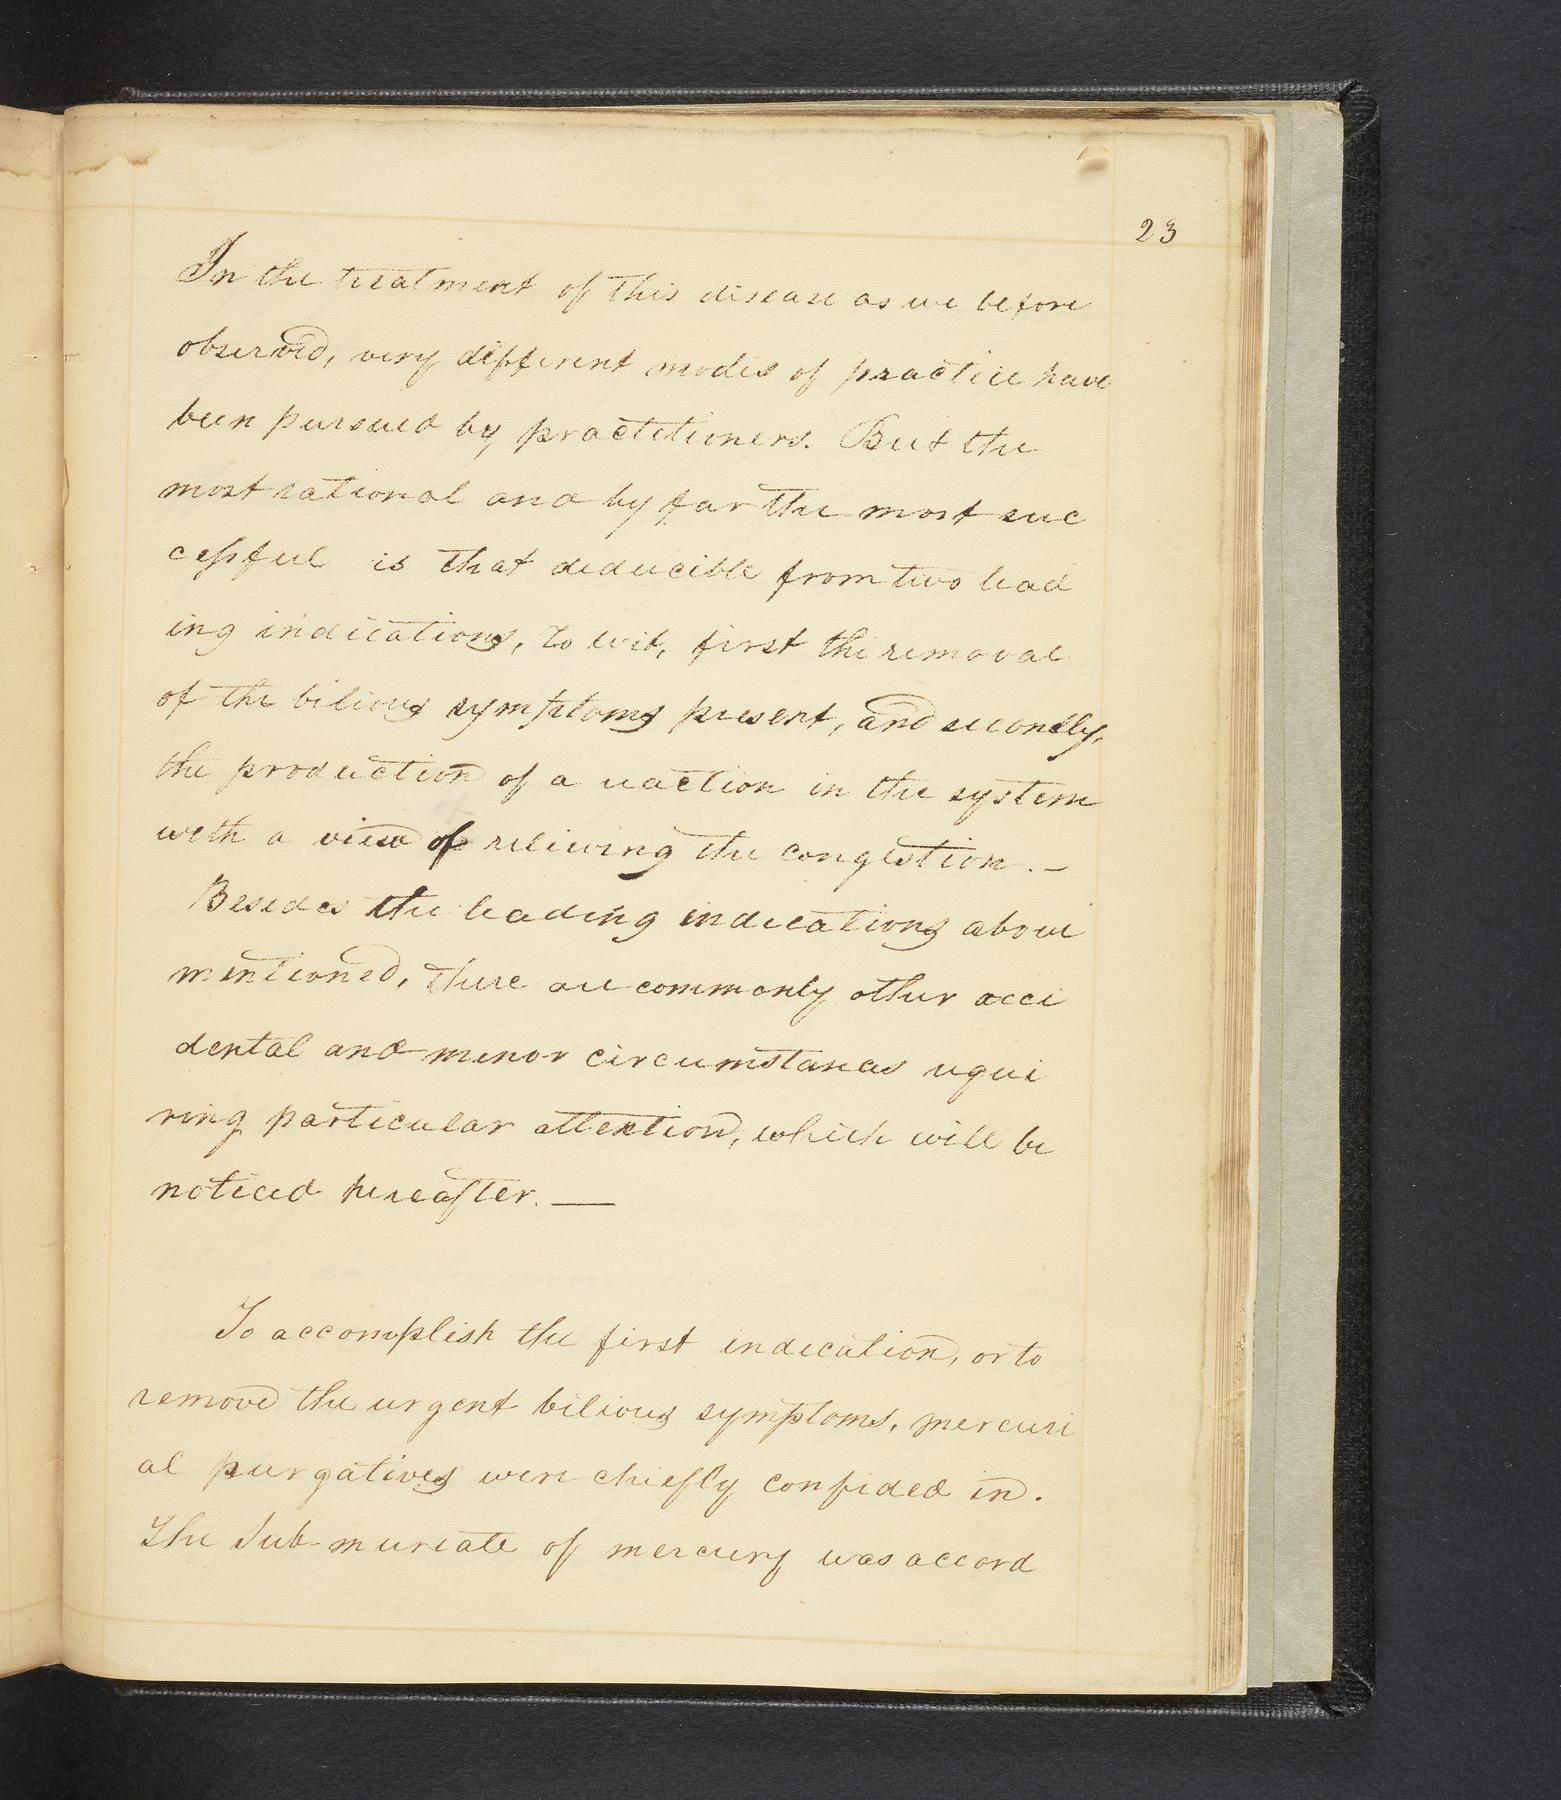 23
In the treatment of this disease as we before
observed, very different modes of practice have
been pursued by practitioners. But the
most rational and by far the most suc
cessful is that deducible from two lead
ing indications, to wit, first the removal
of the bilious symptoms present, and secondly,
the production of a reaction in the system
with a view of relieving the congestion. –
Besides the leading indications above
mentioned, there are commonly other acci
dental and minor circumstances requi
ring particular attention, which will be
noticed hereafter. —
To accomplish the first indication, or to
remove the urgent bilious symptoms, mercuri
al purgatives were chiefly confided in.
The Sub-muriate of mercury was accord